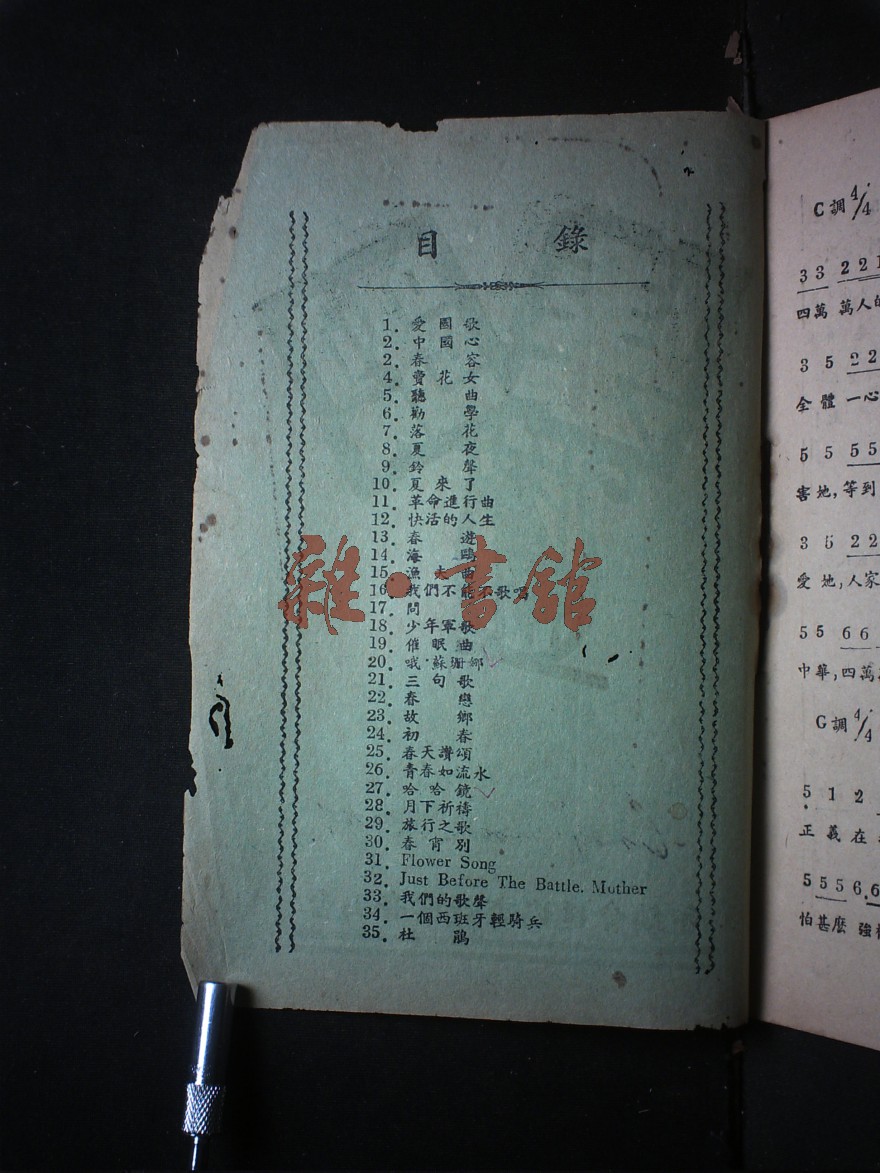 目錄
1. 愛國歌
2. 中國心
2. 春容
4. 賣花女
5. 聽曲
6. 勸學
7. 落花
8. 夏夜
9. 鈴聲
10. 夏來了
11. 革命進行曲
12. 快活的人生
13. 春遊
14. 海鷗
15. 漁夫曲
16. 我們不能不歌唱
17. 問
18. 少年軍歌
19. 催眠曲
20. 哦·蘇珊娜
21. 三句歌
22. 春戀
23. 故鄉
24. 初春
25. 春天讚頌
26. 青春如流水
27. 哈哈鏡
28. 月下祈禱
29. 旅行之歌
30. 春宵別
31. Flower Song
32. Just Before The Battle. Mother
33. 我們的歌聲
34. 一個西班牙輕騎兵
35. 杜鵑
雜·書館
C調 4/4
3 3 2 2 1
四萬萬人的
3 5 2 2
全體一心
5 5 5 5
害地,等到
3 5 2 2
愛地,人家
5 5 6 6
中華,四萬
G調 4/4
5 1 2
正義在
5 5 5 6. 6
怕甚麼強